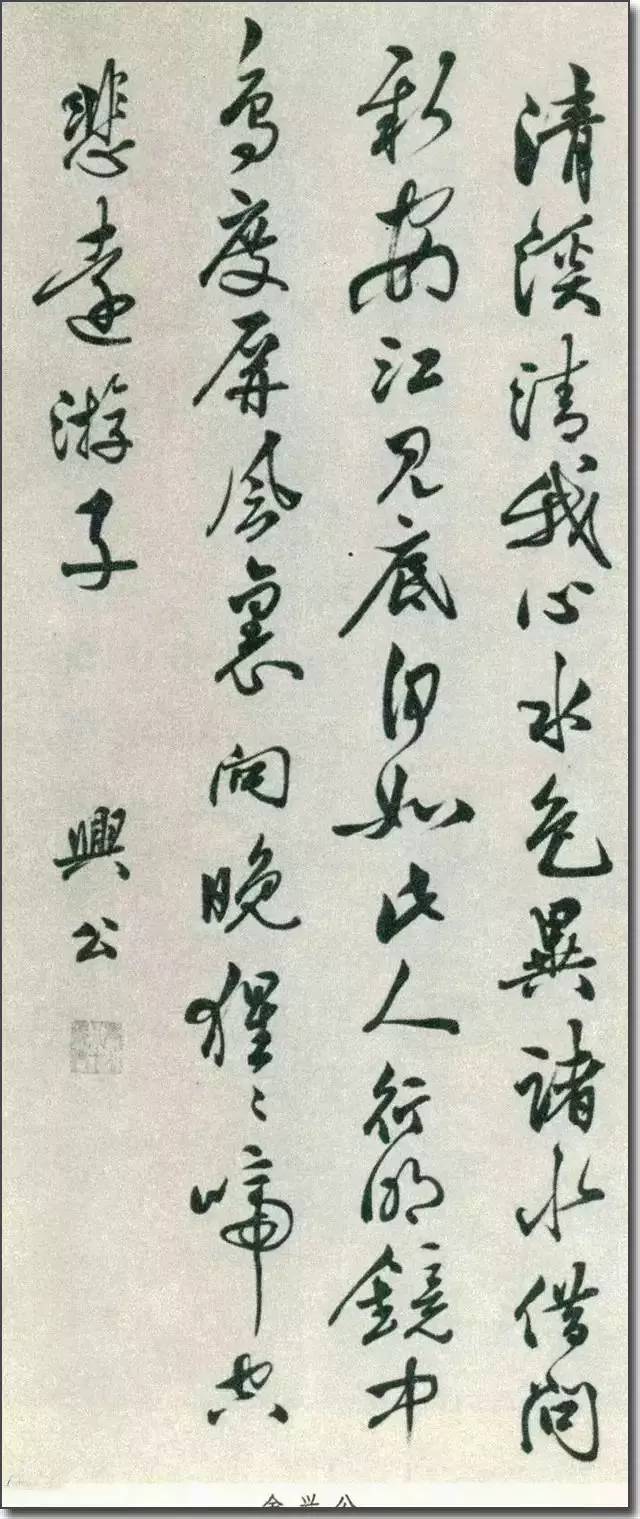 清溪清我心水色異諸水借問
新安江見底何如此人行明鏡中
鳥度屏風裏向晚猩〻啼空
悲遠游子 興公